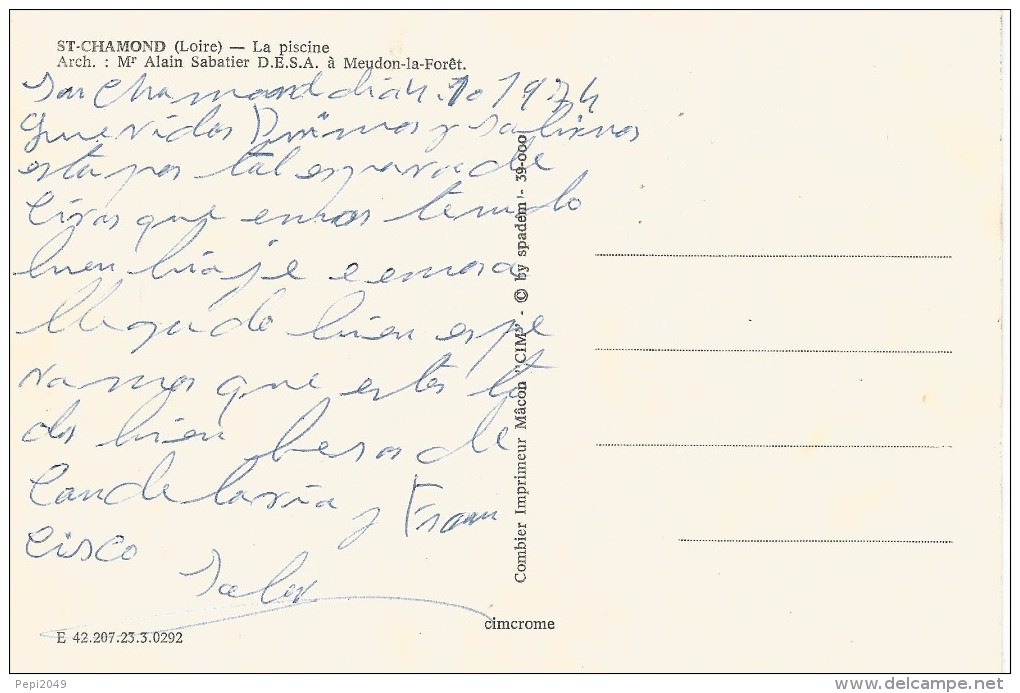 ST-CHAMOND (Loire) — La piscine
Arch. : Mr Alain Sabatier D.E.S.A. à Meudon-la-Forêt.
San Chamond dia 4.10 1974
Queridos Primos y sobrinos
esta pos tal es para de
ciros que emos tenido
buen biaje e emos a
llegado bien espe
ramos que estes to
dos bien besos de
Candelaria y Fran
cisco
E 42.207.23.3.0292
Combier Imprimeur Mâcon "CIM" - © by spadem - 39-000
cimcrome
Pepi2049
www.delcampe.net